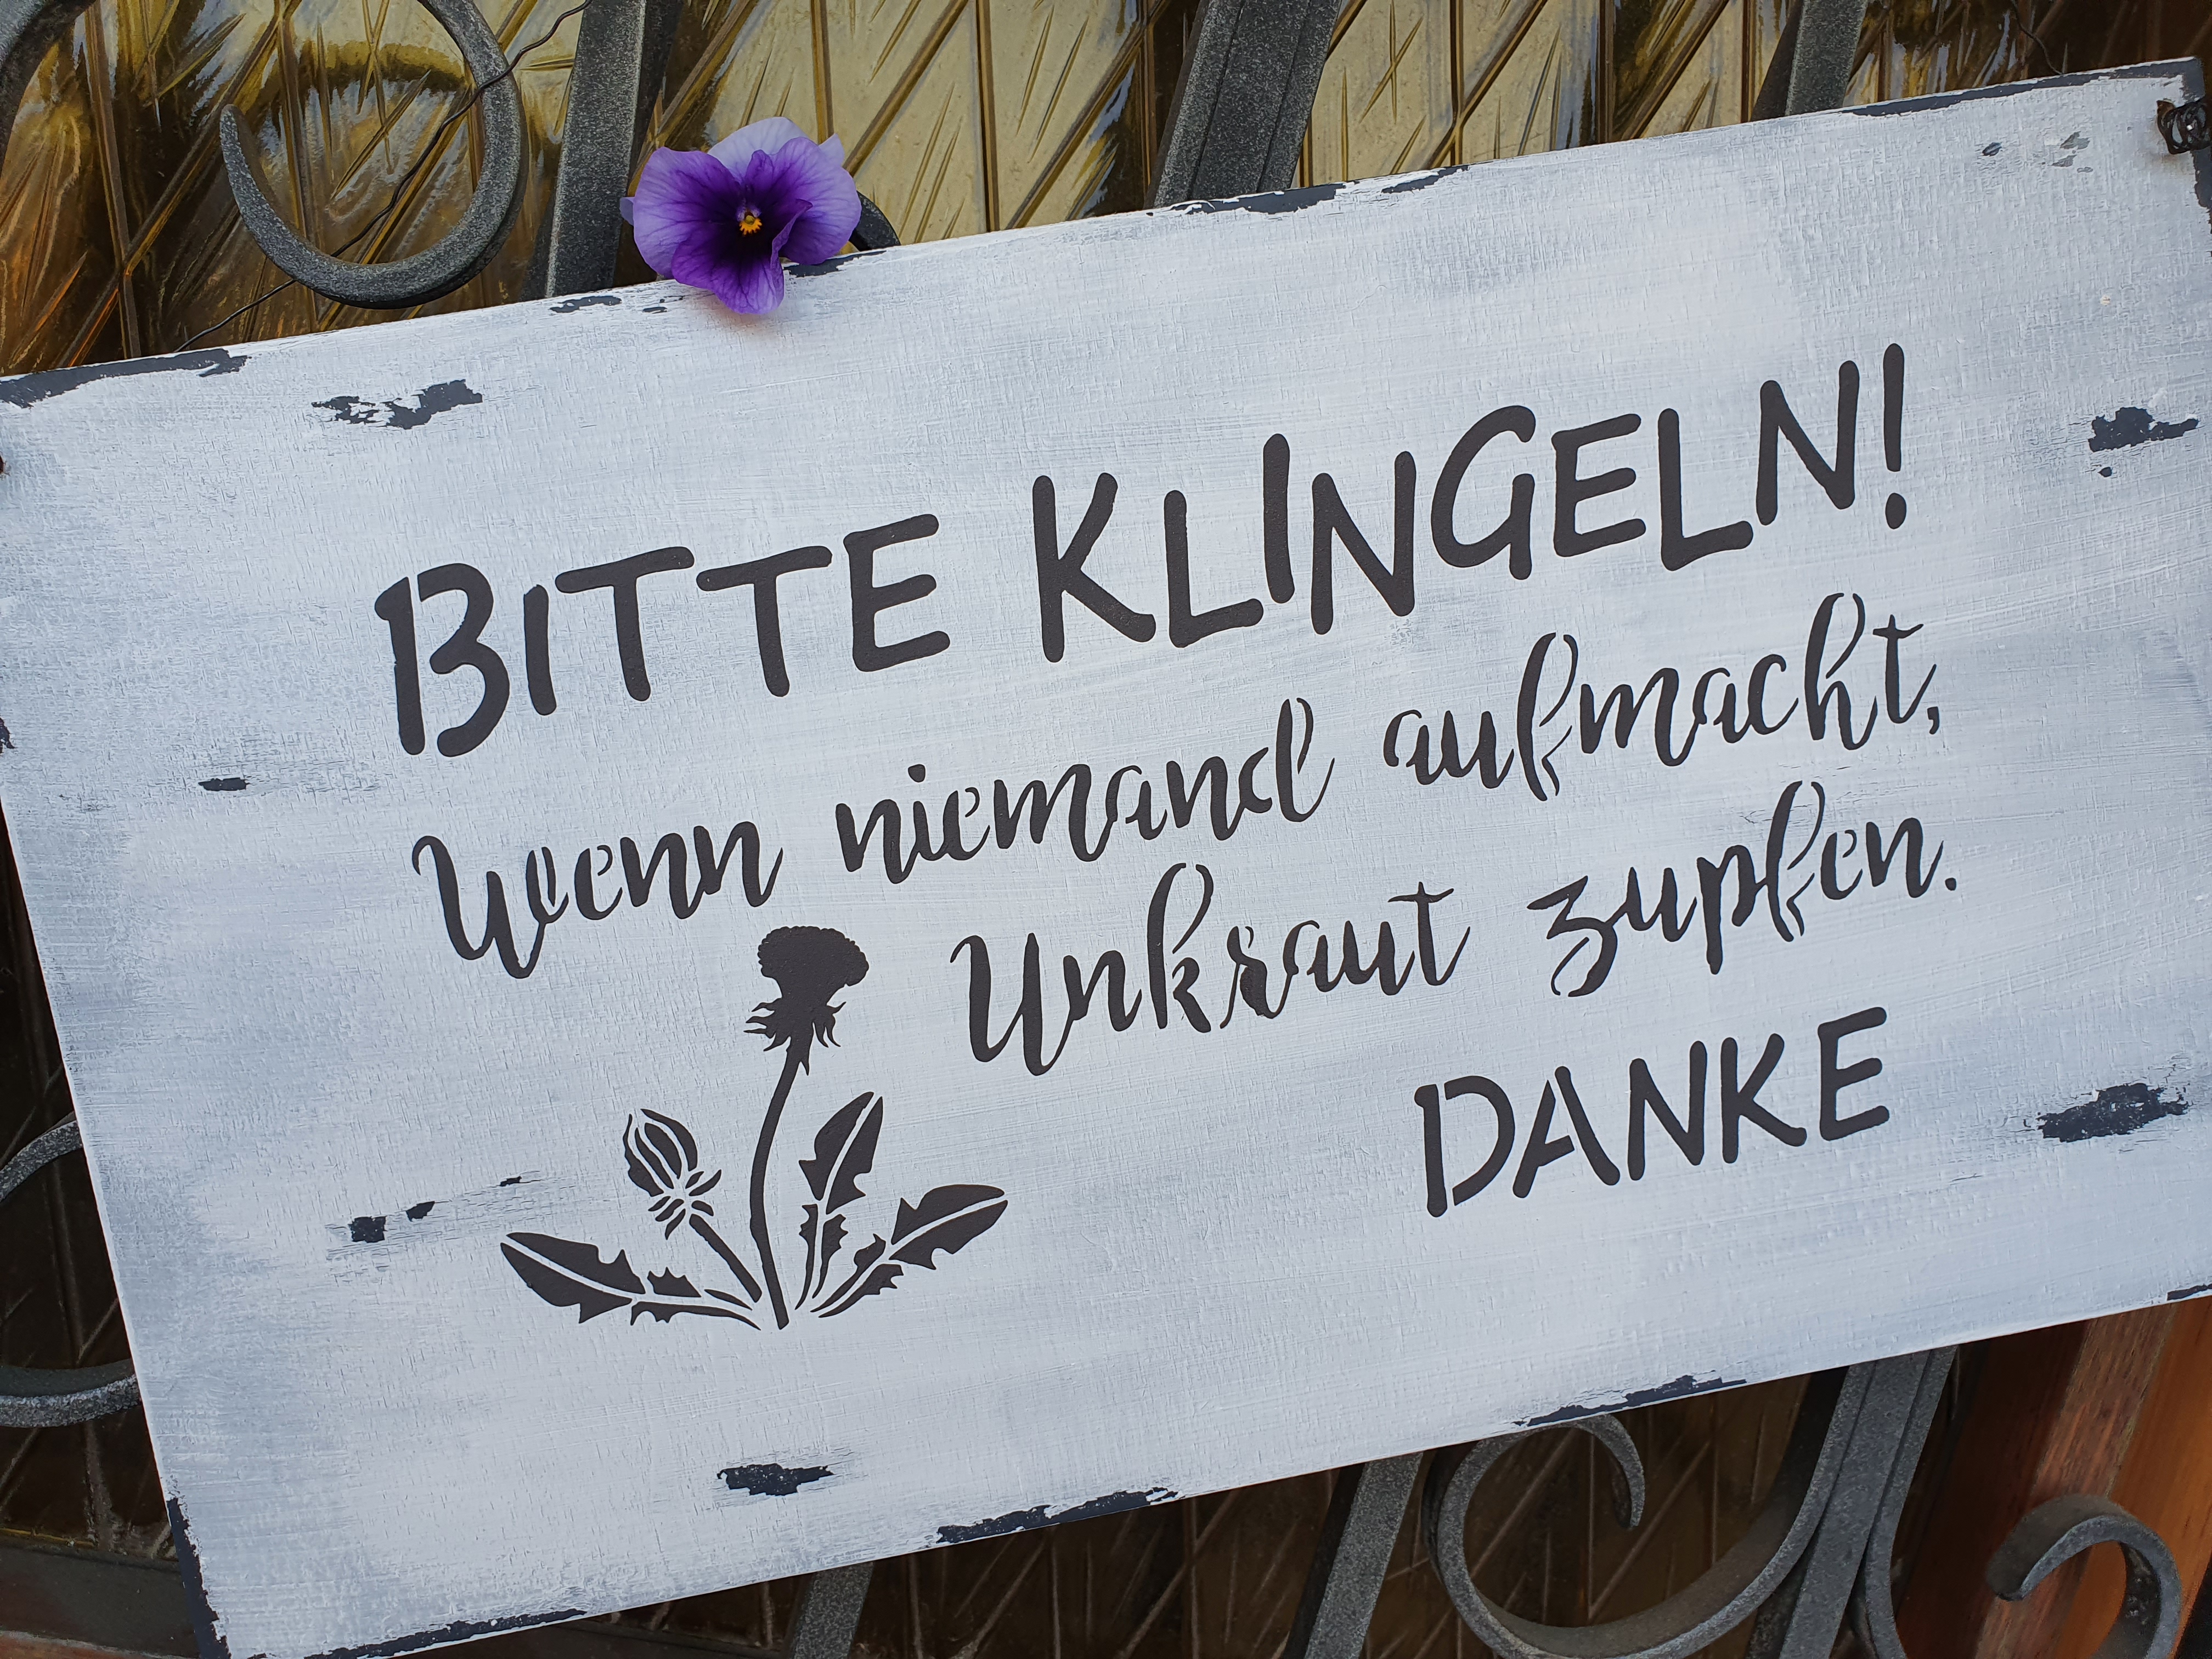 BITTE KLINGELN!
Wenn niemand aufmacht,
Unkraut zupfen.
DANKE